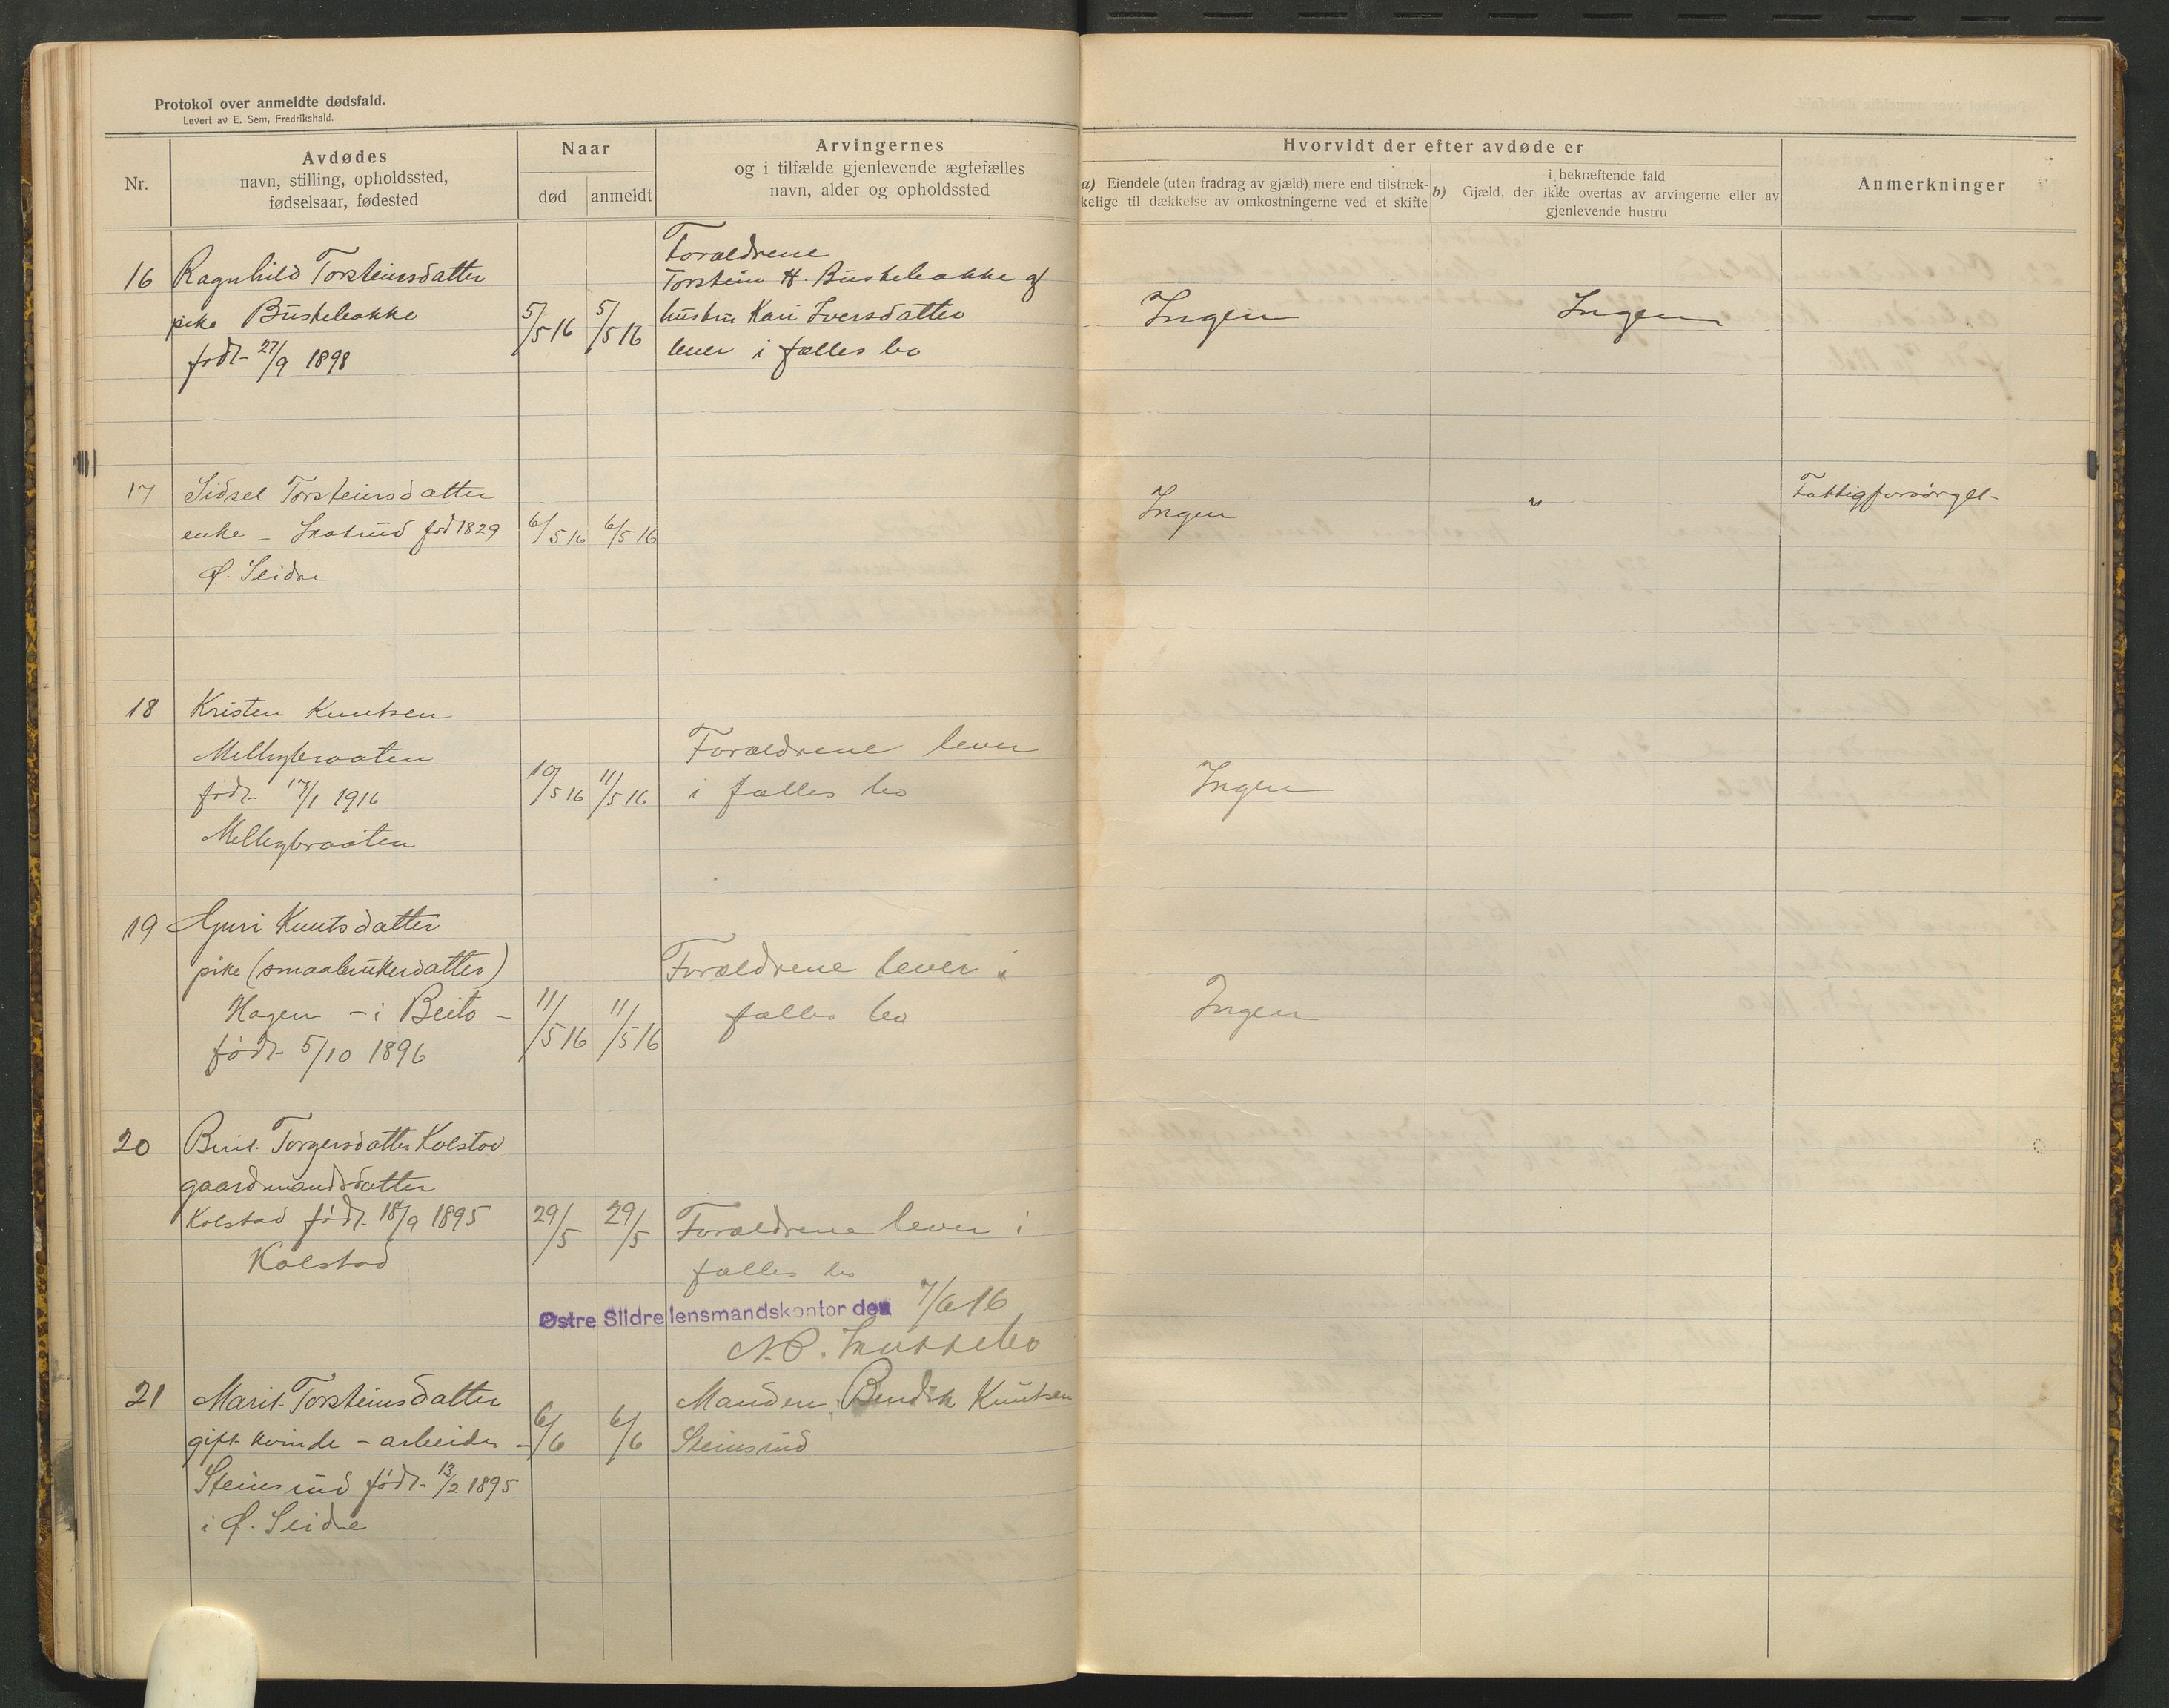 Protokol over anmeldte dødsfald.
Levert av E. Sem, Fredrikshald.
Nr.
Avdødes
navn, stilling, opholdssted,
fødselsaar, fødested
Naar
død
anmeldt
Arvingernes
og i tilfælde gjenlevende ægtefælles
navn, alder og opholdssted
Hvorvidt der efter avdøde er
a) Eiendele (uten fradrag av gjæld) mere end tilstræk-
kelige til dækkelse av omkostningerne ved et skifte
i bekræftende fald
b) Gjæld, der ikke overtas av arvingerne eller av
gjenlevende hustru
Anmerkninger
16
Ragnhild Torsteinsdatter
pike
født 27/9 1898
5/5 16
5/5 16
Forældrene
Torstein H.
hustru Kari Iversdatter
lever i fælles bo
Ingen
Ingen
17
Sidsel Torsteinsdatter
enke - fød 1829
Ø. Slidre
6/5 16
6/5 16
Ingen
"
Fattigforsørget
18
Kristen Knutsen
Mellygbraaten
født 17/1 1916
Mellygbraaten
10/5 16
11/5 16
Forældrene lever
i fælles bo
Ingen
19
Guri Knutsdatter
pike (smaabrukerdatter)
Hagen - i Beito -
født 5/10 1896
11/5 16
11/5 16
Forældrene lever i
fælles bo
Ingen
20
Berit Torgersdatter Kolstad
gaardmandsdatter
Kolstad født 18/9 1895
Kolstad
29/5
29/5
Forældrene lever i
fælles bo
Østre Slidre lensmandskontor den 7/6 16
N. P.
21
Marit Torsteinsdatter
gift kvinde - arbeider -
Steinsrud født 13/2 1895
i Ø. Slidre
6/6
6/6
Manden Bendik Knutsen
Steinsrud